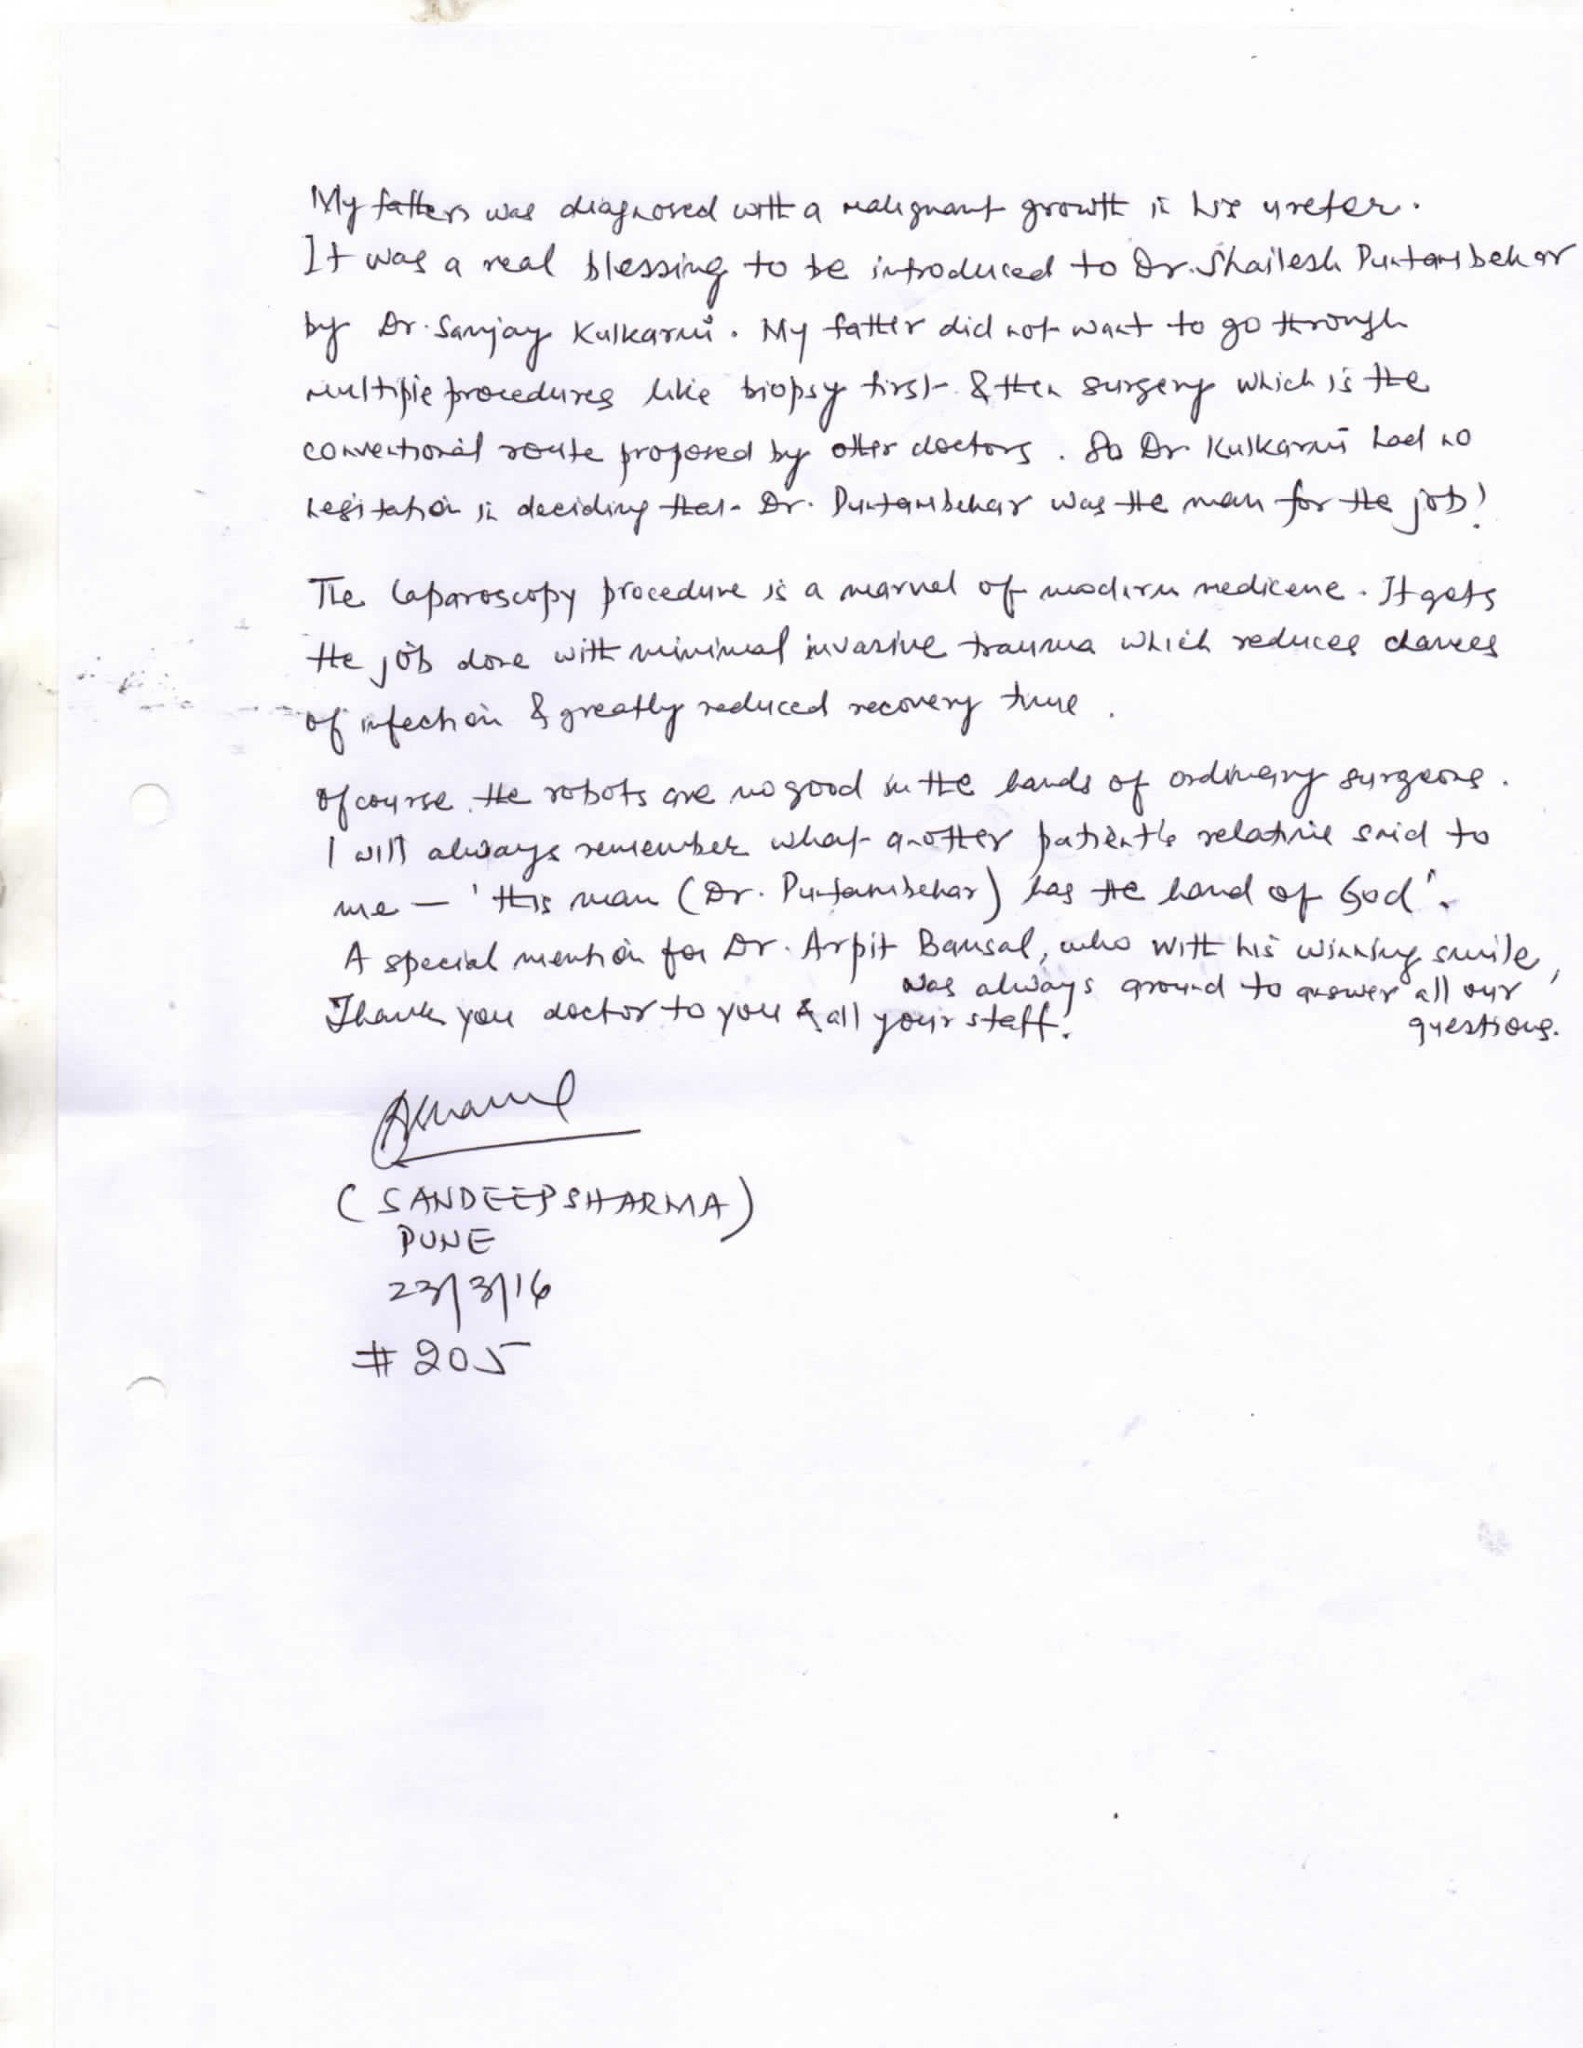 My fathers was diagnosed with a malignant growth in his ureter.
It was a real blessing to be introduced to Dr. Shailesh Puntambekar
by Dr. Sanjay Kulkarni. My father did not want to go through
multiple procedures like biopsy first & then surgery which is the
conventional route proposed by other doctors. So Dr. Kulkarni had no
hesitation in deciding that Dr. Puntambekar was the man for the job!
The laparoscopy procedure is a marvel of modern medicene. It gets
the job done with minimal invasive trauma which reduces chances
of infection & greatly reduced recovery time.
Of course the robots are no good in the hands of ordinary surgeons.
I will always remember what another patient's relative said to
me — 'this man (Dr. Puntambekar) has the hand of God'.
A special mention for Dr. Arpit Bansal, who with his winning smile,
was always around to answer all our
questions.
Thank you doctor to you & all your staff!
(SANDEEP SHARMA)
PUNE
23/3/16
# 205